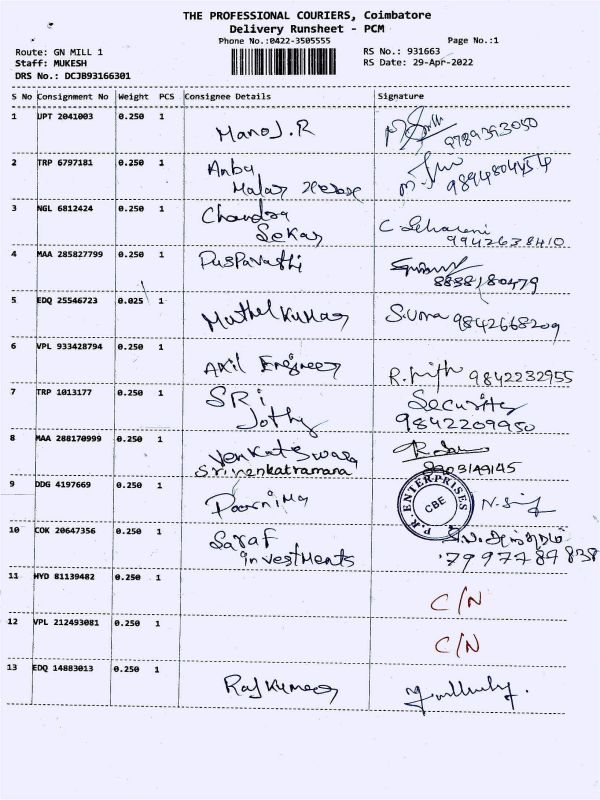 THE PROFESSIONAL COURIERS, Coimbatore
Delivery Runsheet - PCM
Phone No.:0422-3505555 Page No.:1
Route: GN MILL 1 RS No.: 931663
Staff: MUKESH RS Date: 29-Apr-2022
DRS No.: DCJB93166301
S No Consignment No Weight PCS Consignee Details Signature
1 UPT 2041003 0.250 1
Manoj.R 9789393050
2 TRP 6797181 0.250 1 Anbu
Malar
3 NGL 6812424 0.250 1 Chandra
Sekar C
9942638410
4 MAA 285827799 0.250 1 Puspavathi
8838180479
5 EDQ 25546723 0.025 1
Muthukumar S.Uma 9842668209
6 VPL 933428794 0.250 1
Akil Engineer R. 9842232955
7 TRP 1013177 0.250 1 SRi Security
Jothy 9842209950
8 MAA 288170999 0.250 1 Venkatswara
Srivenkatramana
9 DDG 4197669 0.250 1 Poornima P.R. ENTERPRISES CBE
10 COK 20647356 0.250 1 Saraf
investments 7997789838
11 HYD 81139482 0.250 1
C/N
12 VPL 212493081 0.250 1
C/N
13 EDQ 14883013 0.250 1
Rajkumar